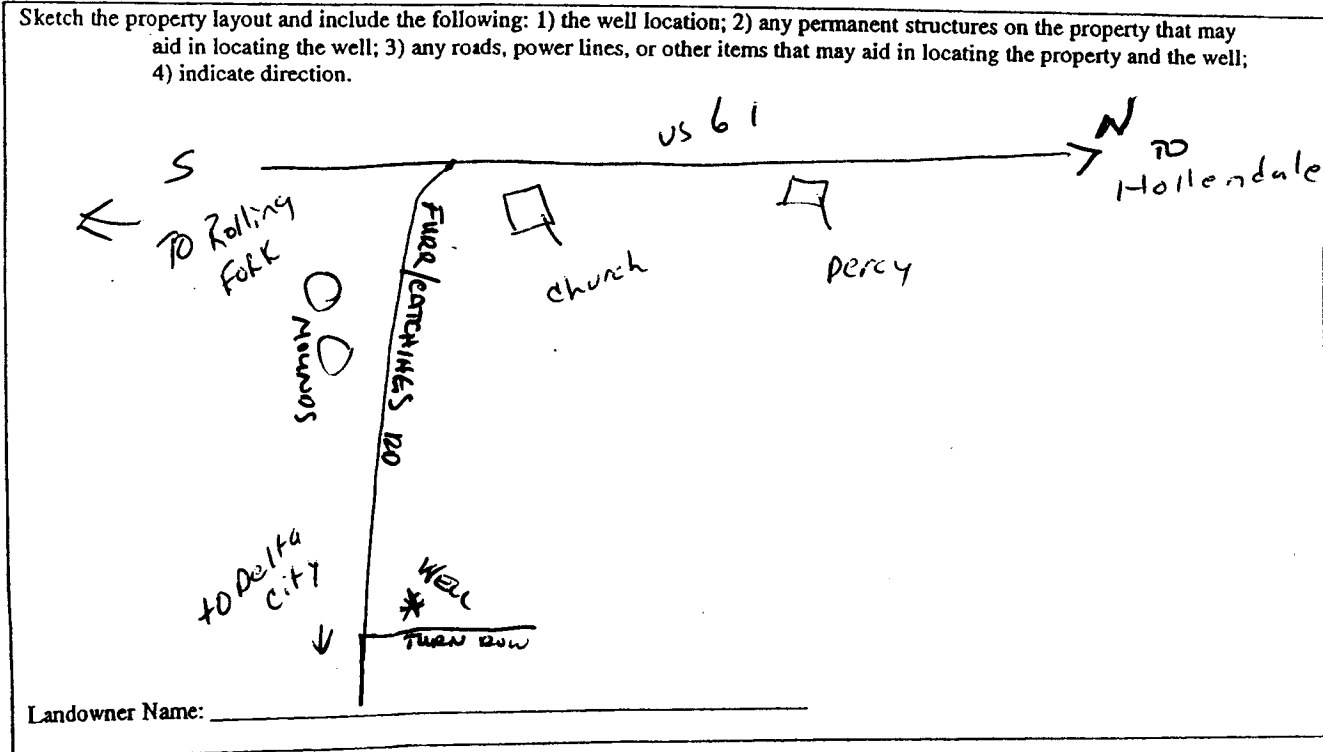 Sketch the property layout and include the following: 1) the well location; 2) any permanent structures on the property that may
aid in locating the well; 3) any roads, power lines, or other items that may aid in locating the property and the well;
4) indicate direction.
US 61
N
TO
Hollendale
S
TO Rolling
FORK
FURR/CATCHINGS RD
church
percy
MOUNDS
to Delta
City
WELL
TURN ROW
Landowner Name: